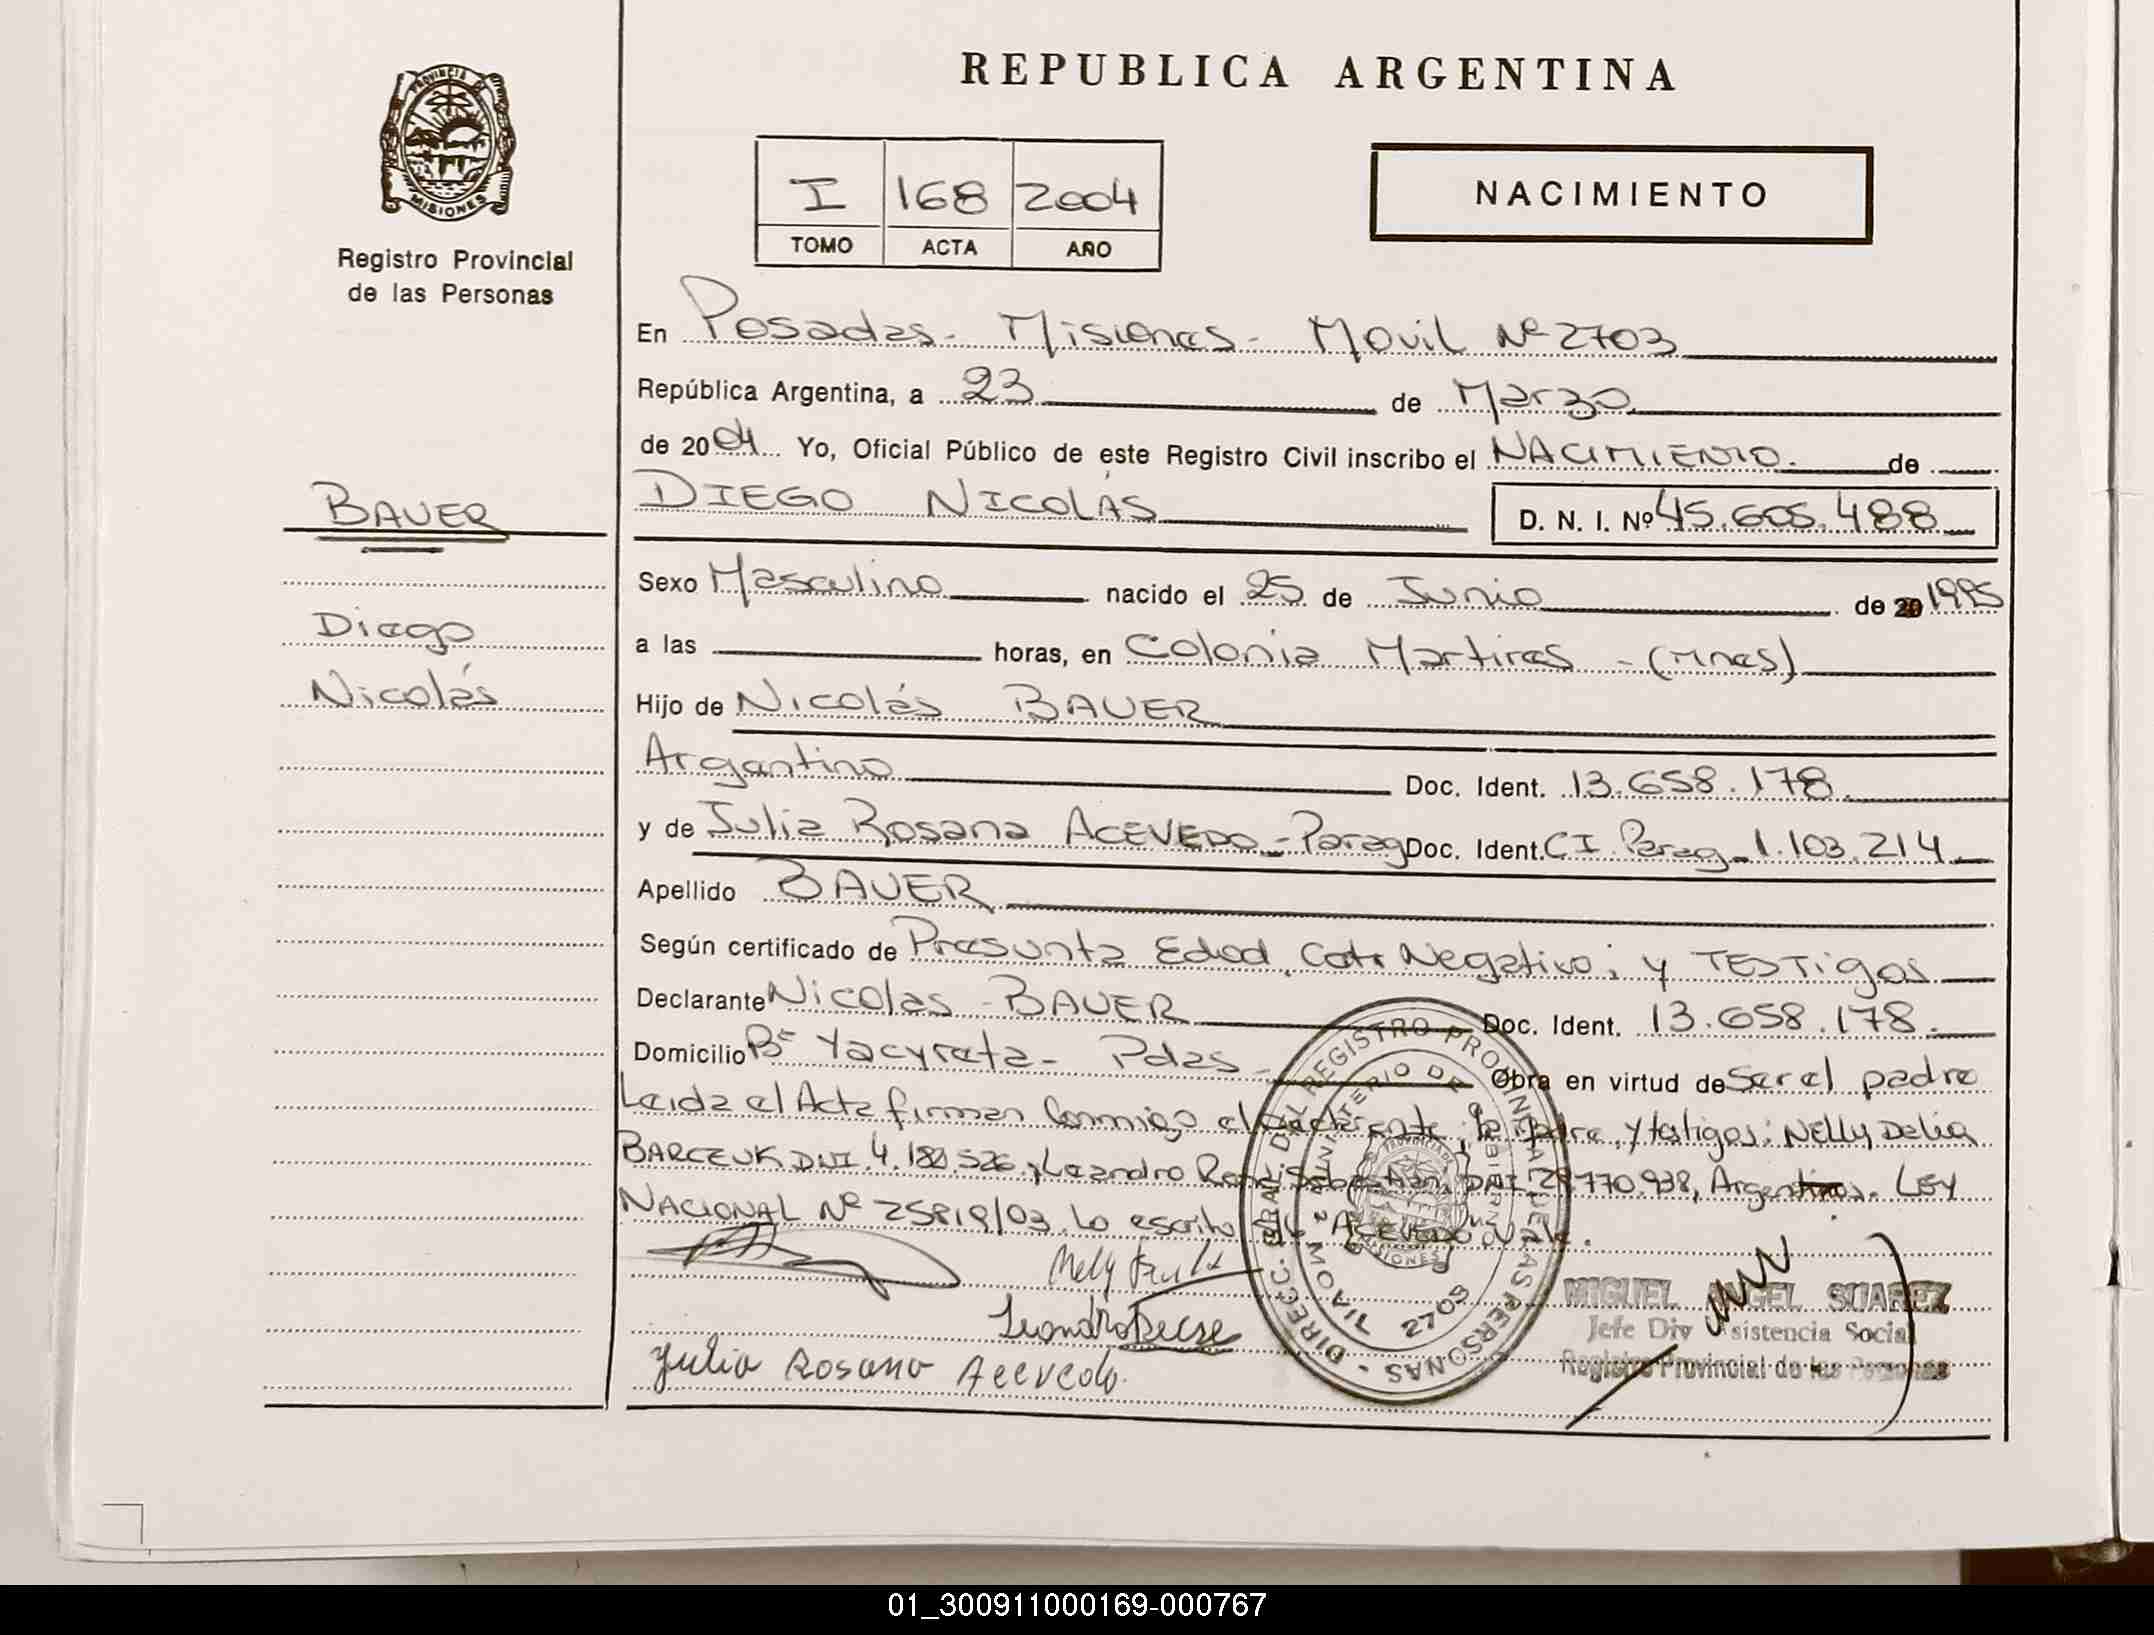 REPUBLICA ARGENTINA
PROVINCIA DE
MISIONES
Registro Provincial
de las Personas
I 168 2004
TOMO ACTA AÑO
NACIMIENTO
En Posadas - Misiones - Movil Nº 2703
República Argentina, a 23 de Marzo
de 2004 Yo, Oficial Público de este Registro Civil inscribo el NACIMIENTO. de
BAUER
DIEGO NICOLÁS D. N. I. Nº 45.605.488
Diego
Nicolás
Sexo Masculino nacido el 25 de Junio de 20 1995
a las horas, en Colonia Martires - (Mnes)
Hijo de Nicolás BAUER
Argentino Doc. Ident. 13.658.178.
y de Julia Rosana ACEVEDO - Parag Doc. Ident. CI Parag 1.103.214
Apellido BAUER
Según certificado de Presunta Edad, Cert Negativo, y TESTigos
Declarante Nicolas BAUER Doc. Ident. 13.658.178.
Domicilio Bº Yacyreta - Pdas - Obra en virtud de Ser el padre
Leida el Acta firman Conmigo el declarante, la madre, y testigos: Nelly Delia
BARCZUK DNI. 4.180.526, Leandro René Sebastian, DNI 29.770.938, Argentinos. LEY
NACIONAL Nº 25819/03. Lo escrito ACEVEDO Vale.
Julia Rosana Acevedo
DIRECC. GRAL. DEL REGISTRO PROVINCIAL DE LAS PERSONAS
MINISTERIO DE GOBIERNO
MOVIL 2703
MIGUEL ANGEL SUAREZ
Jefe Div Asistencia Social
Registro Provincial de las Personas
01_300911000169-000767